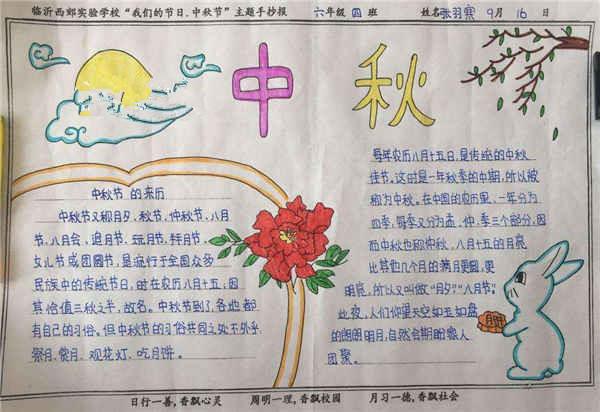 临沂西郊实验学校“我们的节日.中秋节”主题手抄报 六年级 四 班 姓名张羽寒 9月 16 日
中秋
中秋节 的来历
中秋节又称月夕、秋节、仲秋节、八月
节、八月会、追月节、玩月节、拜月节、
女儿节或团圆节,是流行于全国众多
民族中的传统节日,时在农历八月十五,因
其恰值三秋之半,故名。中秋节到了,各地都
有自己的习俗。但中秋节的习俗共同之处不外乎
祭月、赏月、观花灯、吃月饼。
每年农历八月十五日,是传统的中秋
佳节。这时是一年秋季的中期,所以被
称为中秋。在中国的农历里,一年分为
四季,每季又分为孟、仲、季三个部分,因
而中秋也称仲秋。八月十五的月亮
比其他几个月的满月更圆,更
明亮,所以又叫做“月夕”“八月节”。
此夜,人们仰望天空如玉如盘
的朗朗明月,自然会期盼家人
团聚。
月饼
日行一善,香飘心灵 周明一理,香飘校园 月习一德,香飘社会